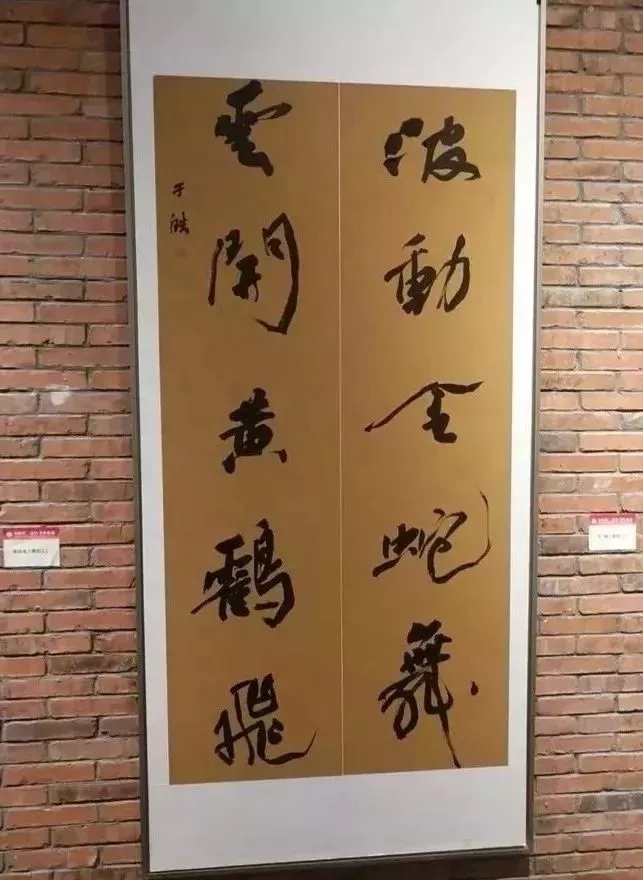 波動金蛇舞
雲開黃鶴飛
于